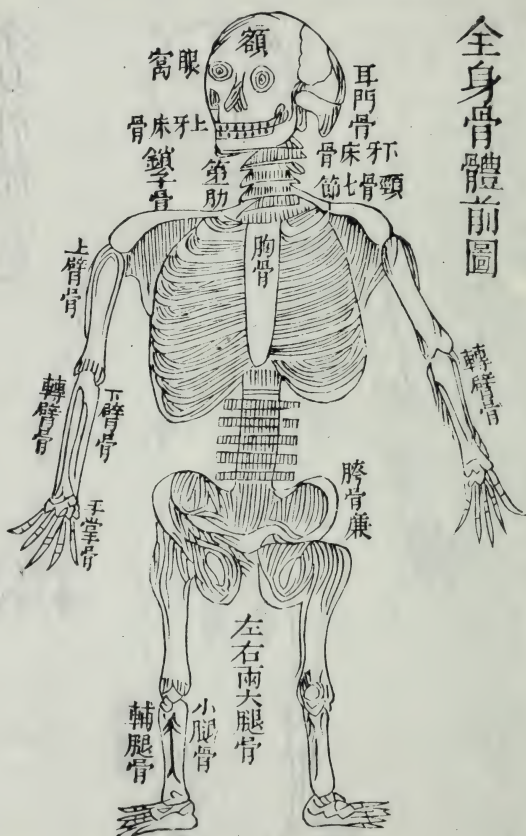 全身骨體前圖
額
眼窩
耳門骨
上牙床骨
下牙床骨
頸骨七節
鎖子骨
第一肋
胸骨
上臂骨
轉臂骨
下臂骨
轉臂骨
手掌骨
胯骨兼
左右兩大腿骨
小腿骨
輔腿骨